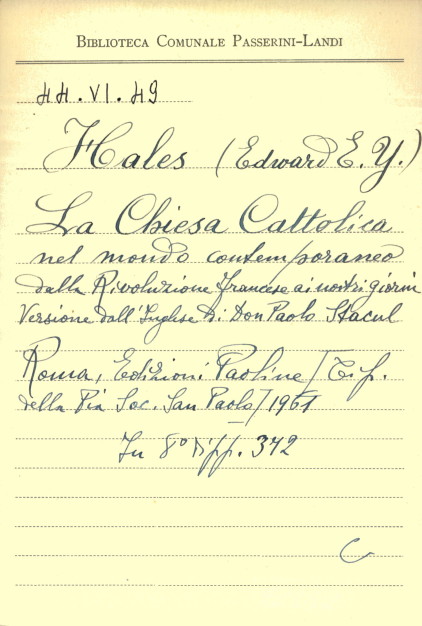 BIBLIOTECA COMUNALE PASSERINI-LANDI
44.VI.49
Hales (Edward E. Y.)
La Chiesa Cattolica
nel mondo contemporaneo
dalla Rivoluzione francese ai nostri giorni
Versione dall'Inglese di Don Paolo Stacul
Roma, Edizioni Paoline / Tip.
della Pia Soc. San Paolo / 1961
In 8° di pp. 342
C